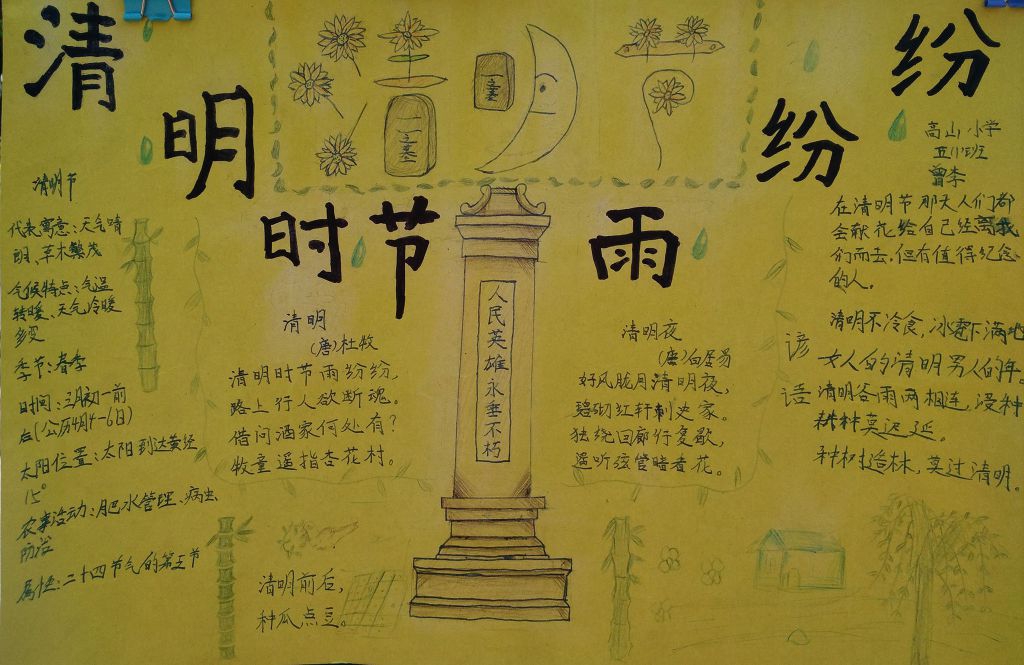 清明时节雨纷纷
高山小学
五(1)班
曾李
清明节
代表寓意:天气晴
朗、草木繁茂
气候特点:气温
转暖、天气冷暖
多变
季节:春季
时间:三月初一前
后(公历4月4-6日)
太阳位置:太阳到达黄经
15°
农事活动:肥水管理、病虫
防治
属性:二十四节气的第五节
清明
(唐)杜牧
清明时节雨纷纷,
路上行人欲断魂。
借问酒家何处有?
牧童遥指杏花村。
清明前后,
种瓜点豆。
人民英雄永垂不朽
清明夜
(唐)白居易
好风胧月清明夜,
碧砌红轩刺史家。
独绕回廊行复歇,
遥听弦管暗看花。
在清明节那天人们都
会献花给自己已经离我
们而去,但有值得纪念
的人。
谚语
清明不冷食,冰雹下满地
女人的清明男人的年。
清明谷雨两相连,浸种
耕种莫迟延。
种树造林,莫过清明。